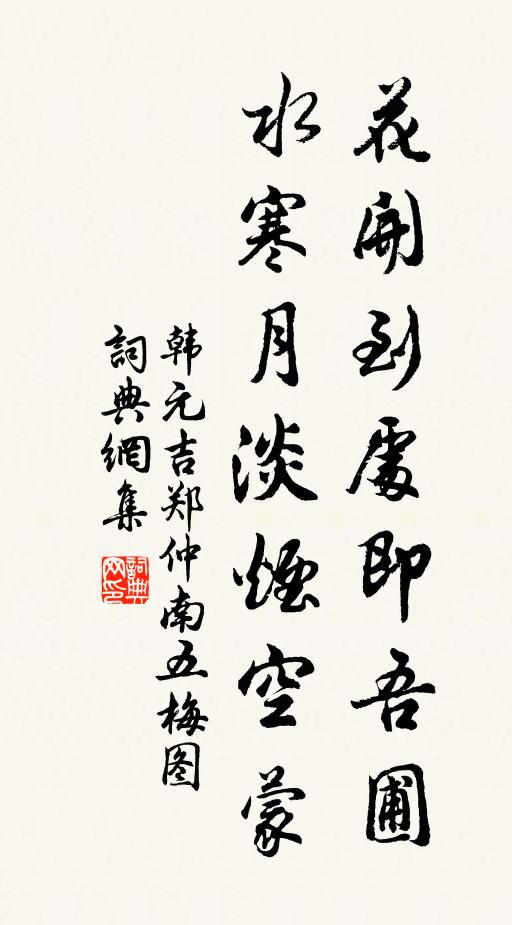 花開到處即吾圃
水寒月淡煙空蒙
韩元吉郑仲南五梅图
詞典網集
詞典网印